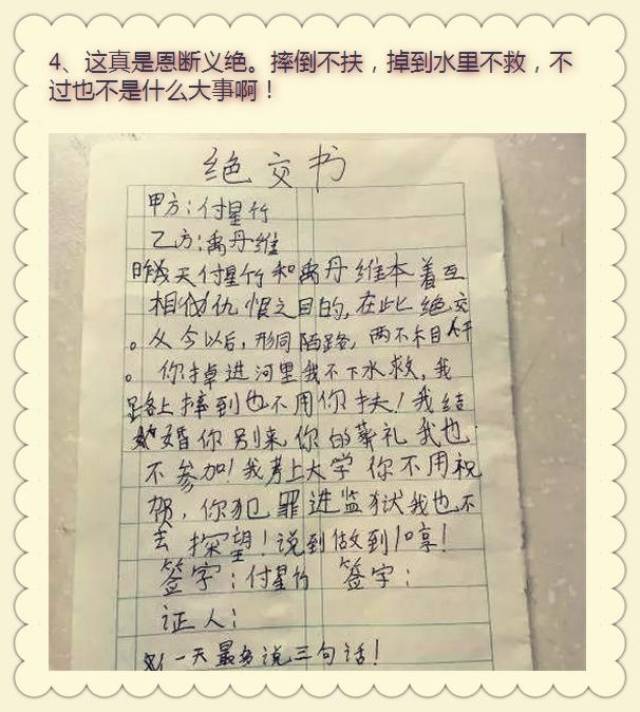 4、这真是恩断义绝。摔倒不扶，掉到水里不救，不
过也不是什么大事啊！
绝交书
甲方：付星竹
乙方：禹丹维
昨天付星竹和禹丹维本着互
相仇恨之目的，在此绝交
。从今以后，形同陌路，两不相干
。你掉进河里我不下水救，我
路上摔到也不用你扶！我结
婚你别来你的葬礼我也
不参加！我考上大学你不用祝
贺，你犯罪进监狱我也不
去探望！说到做到！哼！
签字：付星竹 签字：
证人：
一天最多说三句话！